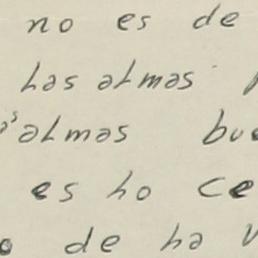 no es de
las almas
almas bue
es lo ce
o de la v